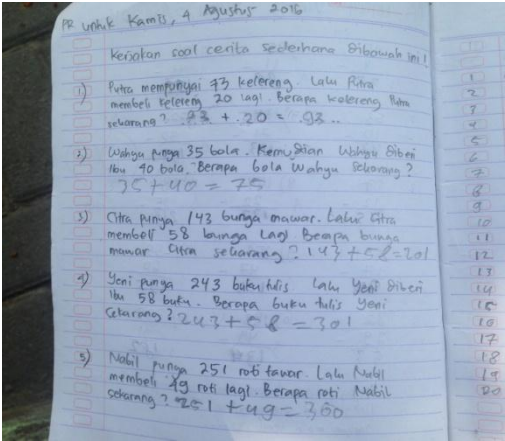 PR untuk Kamis, 4 Agustus 2016
Kerjakan soal cerita sederhana dibawah ini!
1) Putra mempunyai 73 kelereng. Lalu Putra
membeli kelereng 20 lagi. Berapa kelereng Putra
sekarang? 73 + 20 = 93..
2) Wahyu punya 35 bola. Kemudian Wahyu diberi
Ibu 40 bola. Berapa bola Wahyu sekarang?
35 + 40 = 75
3) Citra punya 143 bunga mawar. Lalu Citra
membeli 58 bunga lagi. Berapa bunga
mawar Citra sekarang? 143 + 58 = 201
4) Yeni punya 243 buku tulis Lalu Yeni diberi
Ibu 58 buku. Berapa buku tulis Yeni
sekarang? 243 + 58 = 301
5) Nabil punya 251 roti tawar. Lalu Nabil
membeli 49 roti lagi. Berapa roti Nabil
sekarang? 251 + 49 = 300
1
2
3
4
5
6
7
8
9
10
11
12
13
14
15
16
17
18
19
20